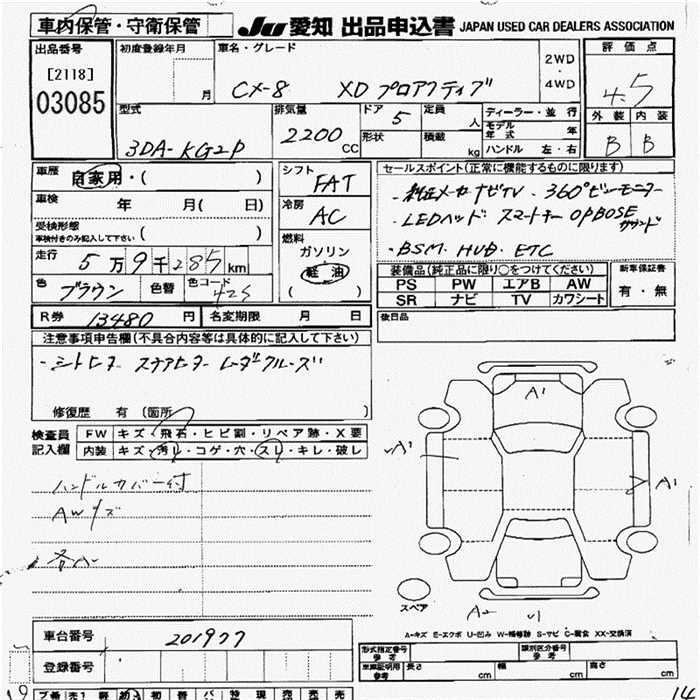 車内保管・守衛保管 JU 愛知 出品申込書 JAPAN USED CAR DEALERS ASSOCIATION
出品番号 初度登録年月 車名・グレード 評価点
[2118] 月 CX-8 XD プロアクティブ 2WD・4WD 4.5
03085
型式 排気量 ドア 定員 ディーラー・並行 外装 内装
3DA-KG2P 2200 CC 5 人 モデル年式 年 B B
形状 積載 kg ハンドル 左・右
車歴 自家用・( ) シフト FAT セールスポイント(正常に機能するものに限ります)
車検 年 月( 日) 冷房 AC ・純正メーカーナビTV ・360°ビューモニター
受検形態 ・LEDヘッド スマートキー OP BOSE サウンド
車検付きのみ記入して下さい ( ) 燃料 ・BSM. HUB. ETC
走行 5万9千285km ガソリン
軽油
( )
装備品(純正品に限り○をつけてください) 新車保証書
色 ブラウン 色替 色コード 42S PS PW エアB AW 有・無
SR ナビ TV カワシート
R券 13480円 名変期限 月 日 後日品
注意事項申告欄(不具合内容等は具体的に記入して下さい)
・シートヒーター ステアヒーター レーダークルーズ
修復歴 有(箇所 )
検査員 FW キズ・飛石・ヒビ割・リペア跡・X要
記入欄 内装 キズ・汚レ・コゲ・穴・スレ・キレ・破レ
ハンドルカバー付
AWキズ
各A
A1
A1
A1
スペア
A2 U1
A-キズ E-エクボ U-凹み W-補修跡 S-サビ C-腐食 XX-交換済
車台番号 201977
登録番号
形式指定番号 参考 類別区分番号 参考
車庫証明用 参考 長さ cm 幅 cm 高さ cm
14